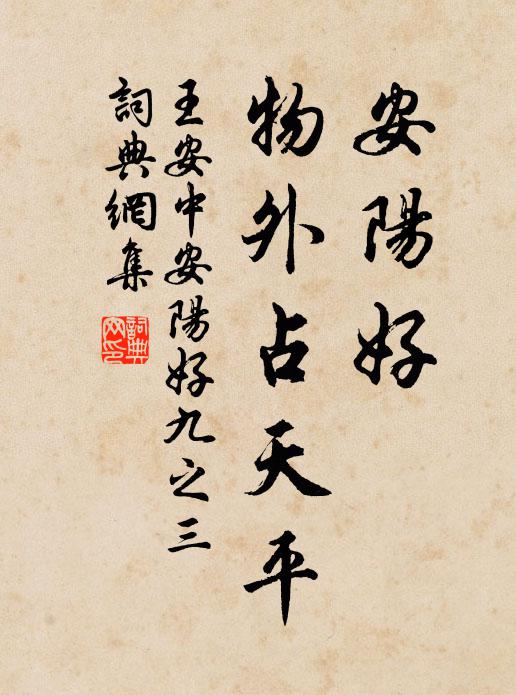 安陽好
物外占天平
王安中安陽好九之三
詞典網集
詞典
网印